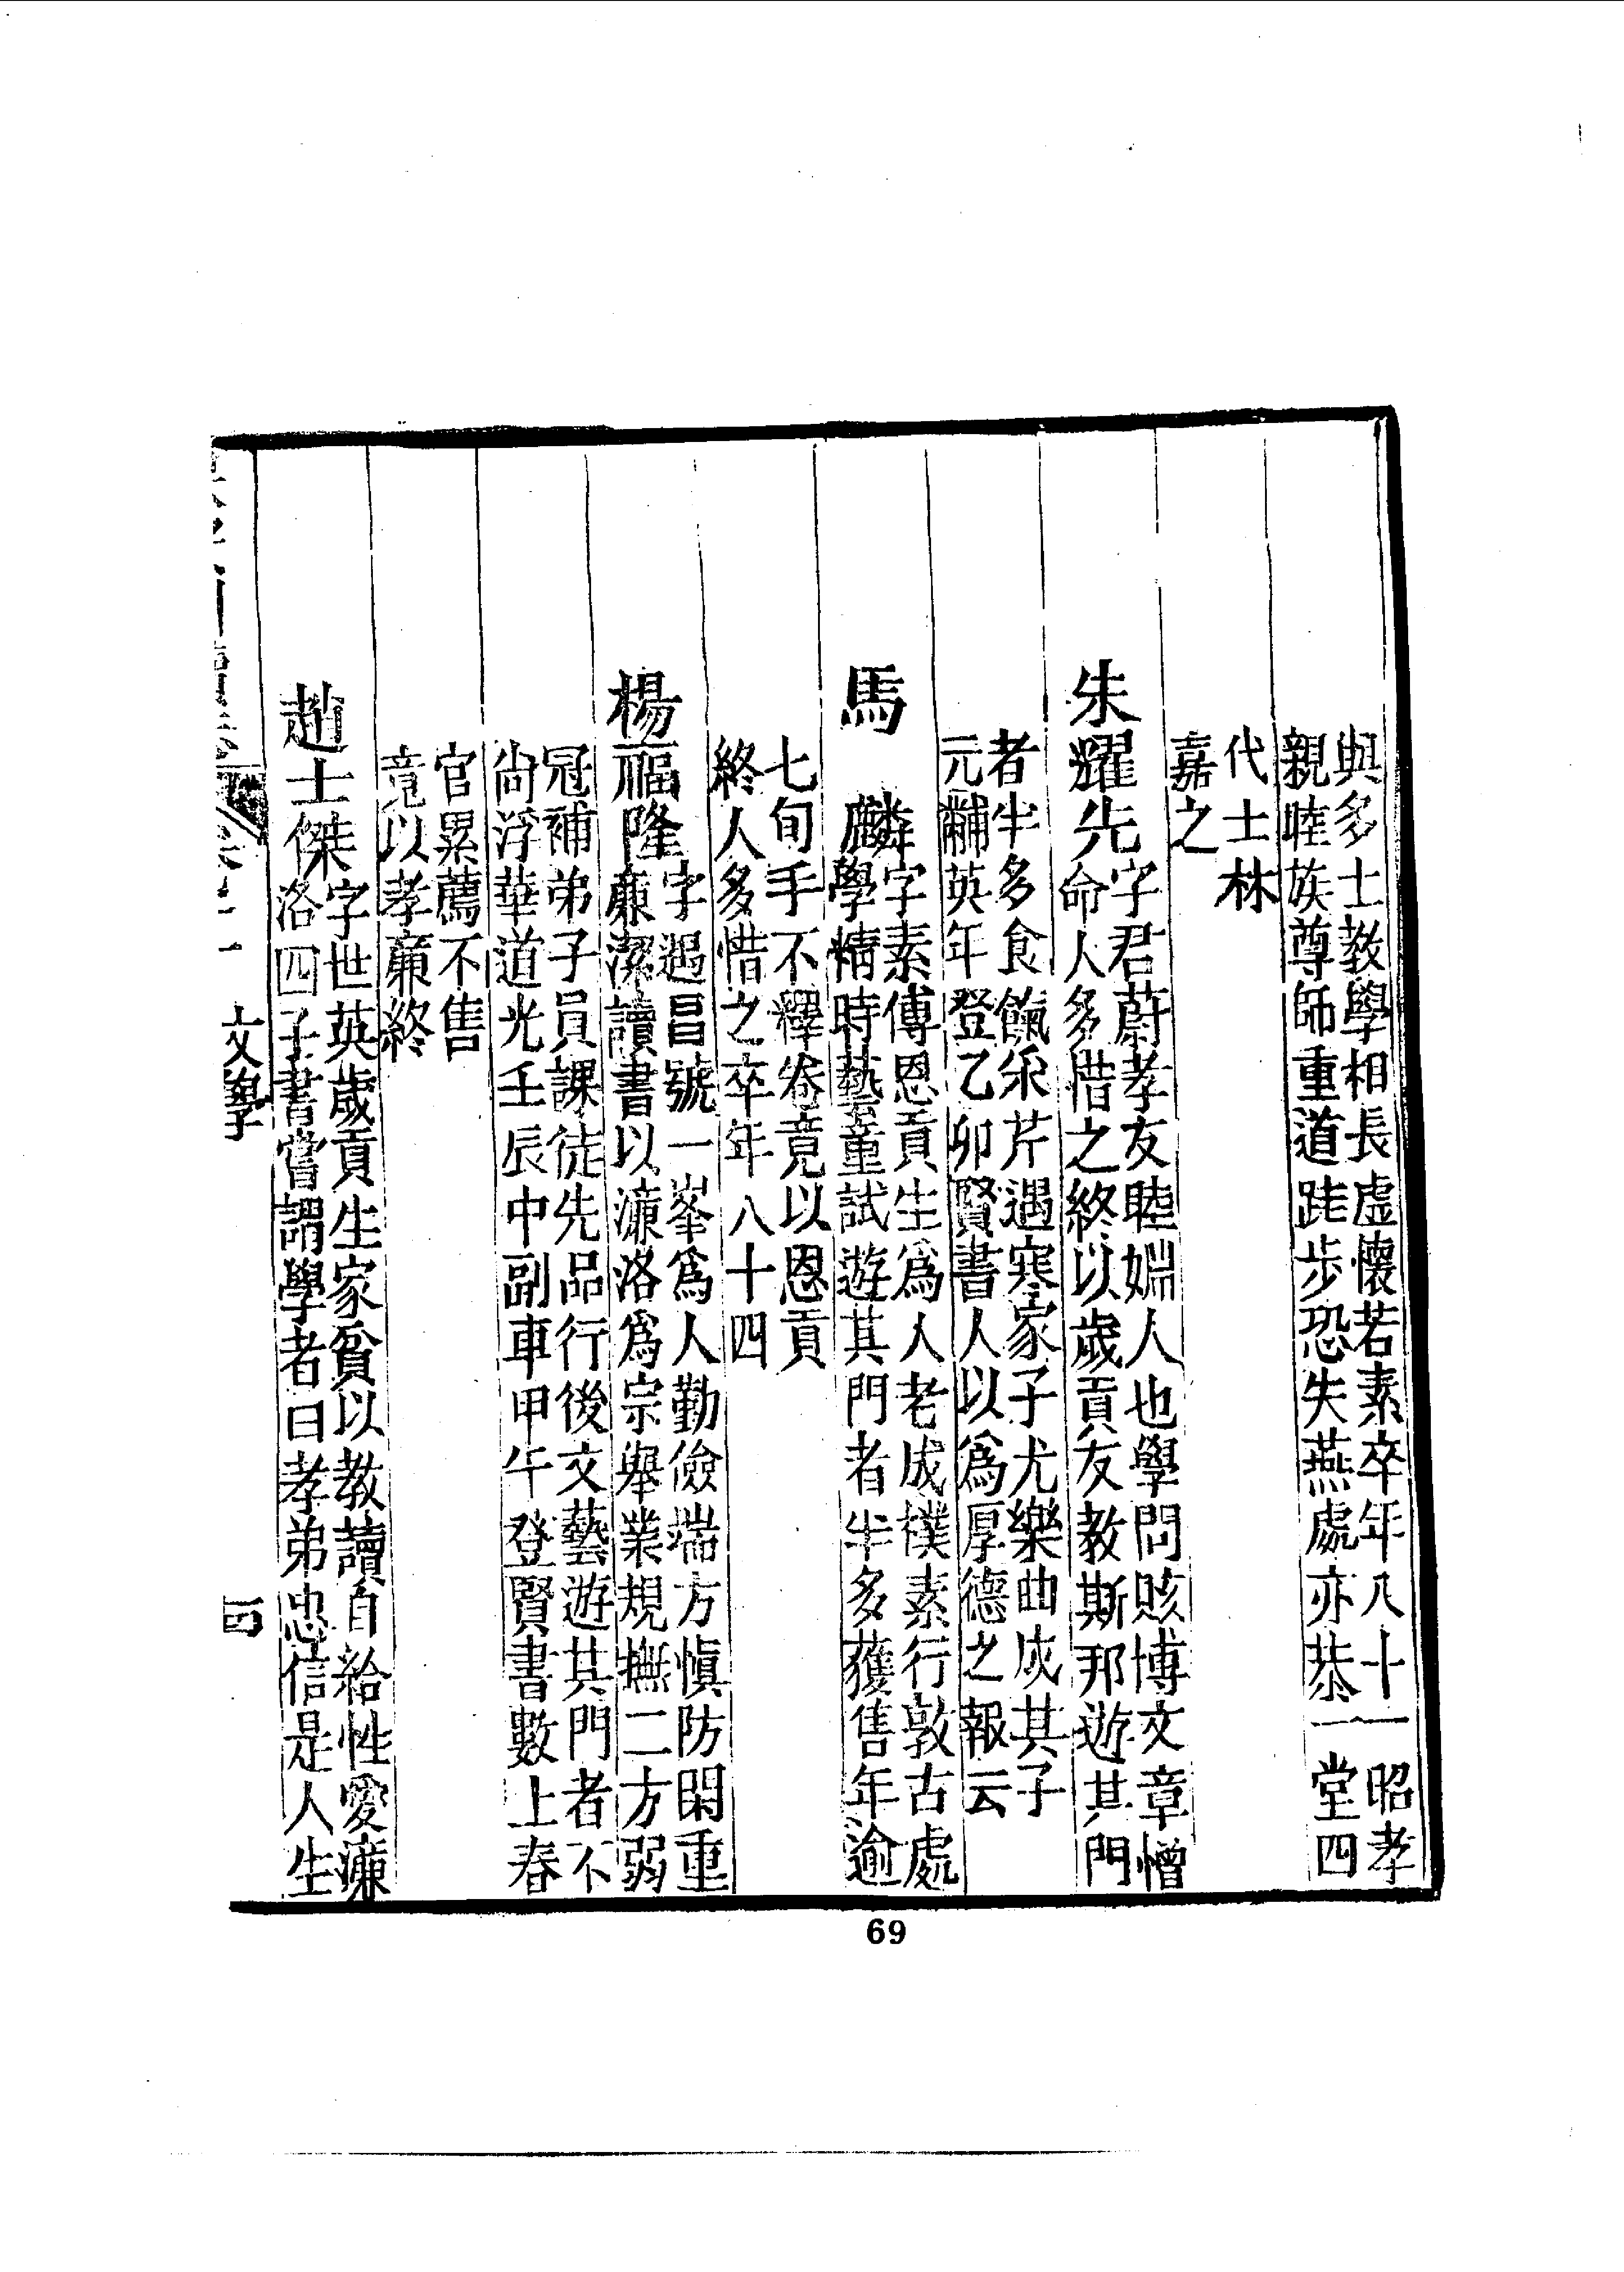 與多士教學相長虛懷若素卒年八十一昭孝
親睦族尊師重道跬步恐失燕處亦恭一堂四
代士林
嘉之
朱耀先
字君蔚孝友睦婣人也學問賅博文章憎
命人多惜之終以歲貢友教斯邦遊其門
者半多食餼采芹遇寒家子尤樂曲成其子
元黼英年登乙卯賢書人以為厚德之報云
馬麟
字素傅恩貢生為人老成樸素行敦古處
學精時藝童試遊其門者半多獲售年逾
七旬手不釋卷竟以恩貢
終人多惜之卒年八十四
楊福隆
字遐昌號一峯為人勤儉端方愼防閑重
廉潔讀書以濂洛為宗舉業規撫二方弱
冠補弟子員課徒先品行後文藝遊其門者不
尙浮華道光壬辰中副車甲午登賢書數上春
官累薦不售
竟以孝廉終
趙士傑
字世英歲貢生家貧以教讀自給性愛濂
洛四子書嘗謂學者曰孝弟忠信是人生
文學
四
69